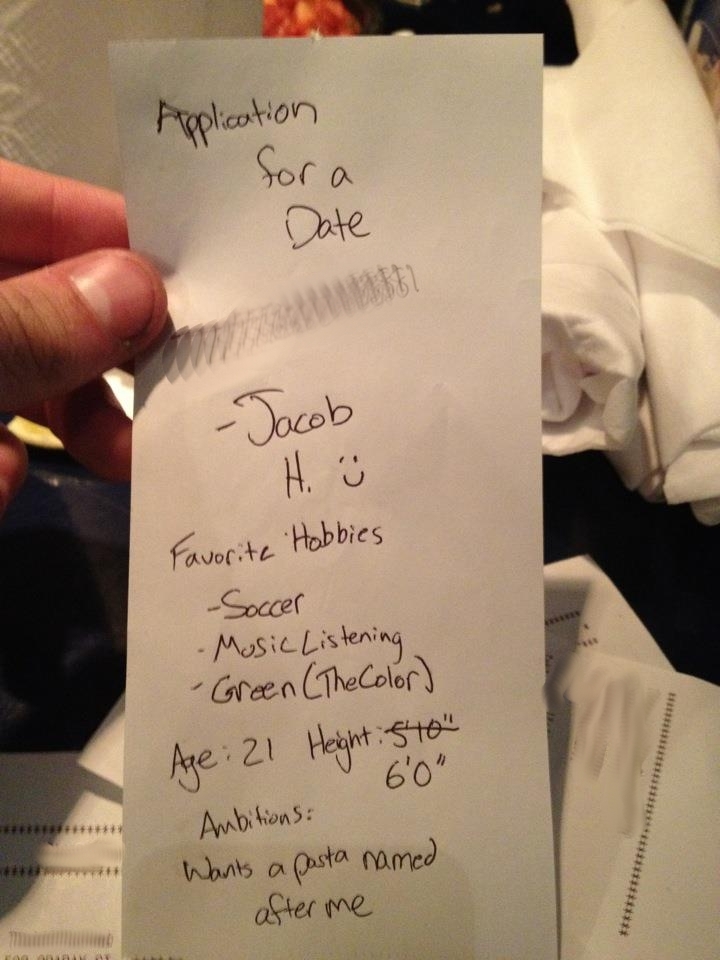 Application
for a
Date
-Jacob
H. :)
Favorite Hobbies
-Soccer
- Music Listening
- Green (The Color)
Age: 21 Height: 5'10"
6'0"
Ambitions:
Wants a pasta named
after me